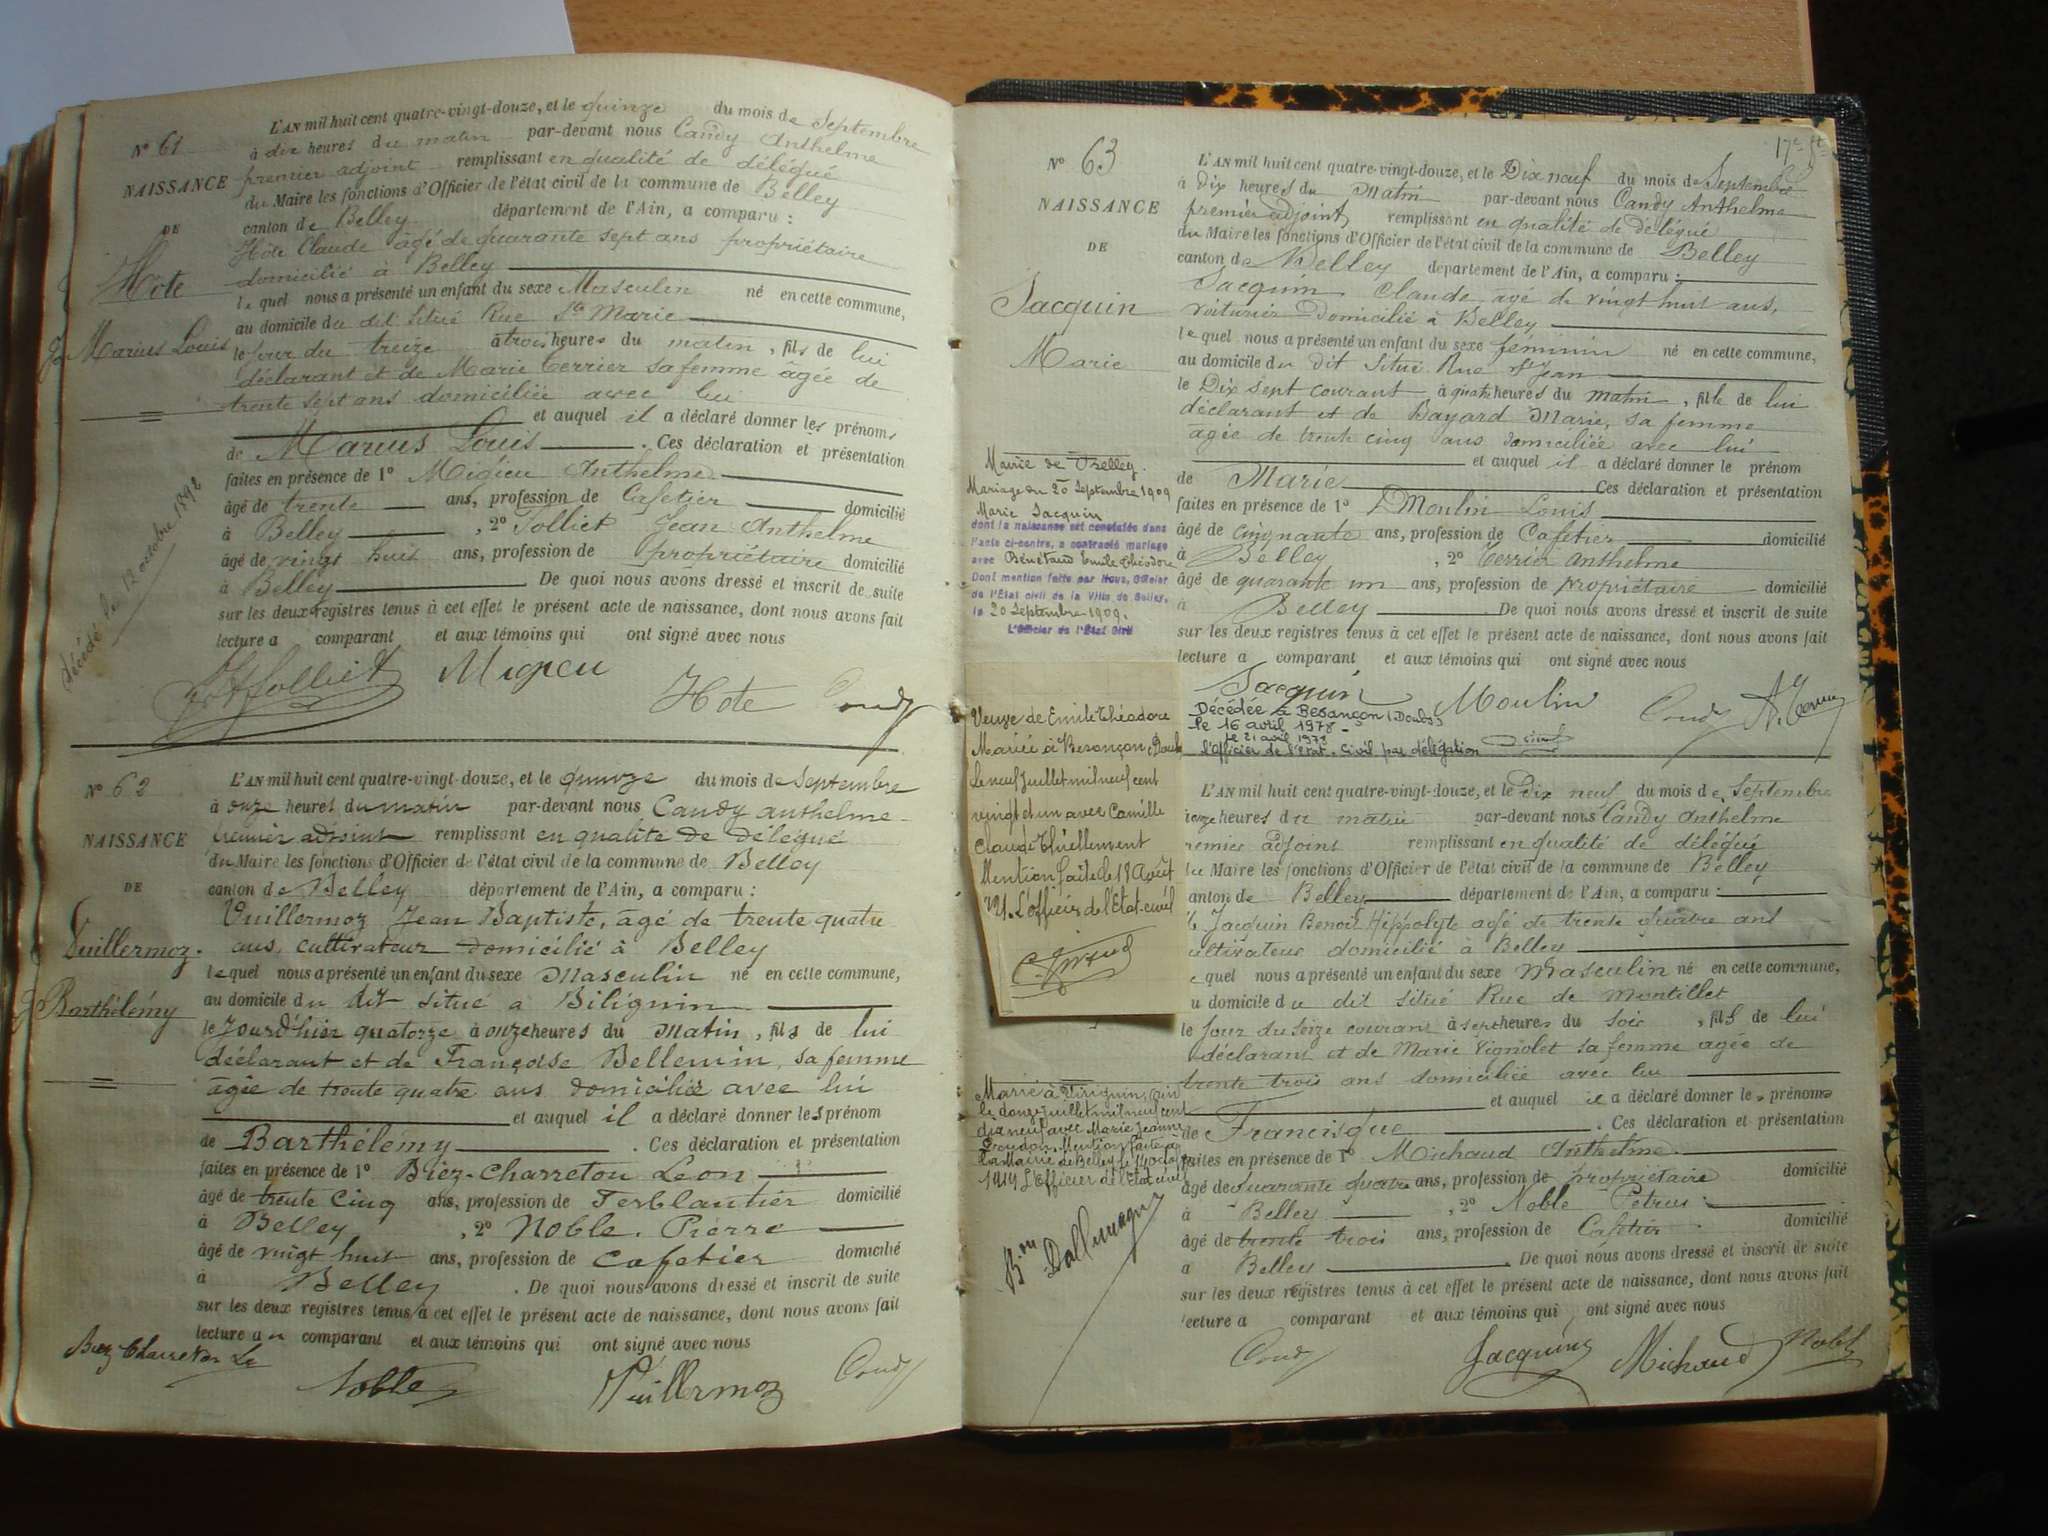 L'AN mil huit cent quatre-vingt-douze, et le quinze du mois de Septembre
N° 61
à dix heures du matin par-devant nous Candy Anthelme
premier adjoint remplissant en qualité de délégué
NAISSANCE
du Maire les fonctions d'Officier de l'état civil de la commune de Belley
DE
canton de Belley département de l'Ain, a comparu :
Hôte Claude âgé de quarante sept ans propriétaire
domicilié à Belley
Hote
lequel nous a présenté un enfant du sexe Masculin né en cette commune,
au domicile du dit situé Rue Ste Marie
Marius Louis
le jour du treize à trois heures du matin, fils de lui
déclarant et de Marie Terrier sa femme agée de
trente sept ans domiciliée avec lui
et auquel il a déclaré donner les prénoms
de Marius Louis. Ces déclaration et présentation
faites en présence de 1° Migieu Anthelme
âgé de trente ans, profession de Cafetier domicilié
à Belley, 2° Tolliet Jean Anthelme
âgé de vingt huit ans, profession de propriétaire domicilié
à Belley. De quoi nous avons dressé et inscrit de suite
sur les deux registres tenus à cet effet le présent acte de naissance, dont nous avons fait
lecture a comparant et aux témoins qui ont signé avec nous
décédé le 12 octobre 1892
Tolliet Migieu
Hote Candy
N° 62
L'AN mil huit cent quatre-vingt-douze, et le quinze du mois de Septembre
à onze heures du matin par-devant nous Candy anthelme
premier adjoint remplissant en qualité de délégué
NAISSANCE
du Maire les fonctions d'Officier de l'état civil de la commune de Belley
DE
canton de Belley département de l'Ain, a comparu :
Vuillermoz Jean Baptiste, agé de trente quatre
Vuillermoz.
ans, cultivateur domicilié à Belley
lequel nous a présenté un enfant du sexe Masculin né en cette commune,
au domicile du dit situé à Bilignin
Barthélémy
le Jourd'hier quatorze à onze heures du Matin, fils de lui
déclarant et de Françoise Bellemin, sa femme
agée de trente quatre ans domiciliée avec lui
et auquel il a déclaré donner les prénom
de Barthélémy. Ces déclaration et présentation
faites en présence de 1° Biez-Charreton Leon
âgé de trente cinq ans, profession de Ferblantier domicilié
à Belley, 2° Noble Pierre
âgé de vingt huit ans, profession de Cafetier domicilié
à Belley. De quoi nous avons dressé et inscrit de suite
sur les deux registres tenus à cet effet le présent acte de naissance, dont nous avons fait
lecture au comparant et aux témoins qui ont signé avec nous
Biez Charreton Le
Noble Vuillermoz Candy
N° 63
L'AN mil huit cent quatre-vingt-douze, et le Dix neuf du mois de Septembre
à dix heures du Matin par-devant nous Candy Anthelme
NAISSANCE
premier adjoint remplissant en qualité de délégué
du Maire les fonctions d'Officier de l'état civil de la commune de Belley
DE
canton de Belley département de l'Ain, a comparu :
Jacquin Claude agé de vingt huit ans,
Jacquin
voiturier Domicilié à Belley
lequel nous a présenté un enfant du sexe féminin né en cette commune,
Marie
au domicile du dit situé Rue St Jean
le Dix sept courant à quatre heures du matin, fille de lui
déclarant et de Bayard Marie, sa femme
agée de trente cinq ans domiciliée avec lui
et auquel il a déclaré donner le prénom
de Marie Ces déclaration et présentation
faites en présence de 1° Moulin Louis
âgé de cinquante ans, profession de Cafetier domicilié
à Belley, 2° Terrier Anthelme
âgé de quarante un ans, profession de propriétaire domicilié
à Belley. De quoi nous avons dressé et inscrit de suite
sur les deux registres tenus à cet effet le présent acte de naissance, dont nous avons fait
lecture a comparant et aux témoins qui ont signé avec nous
Mairie de Belley.
Mariage du 20 Septembre 1909
Marie Jacquin
dont la naissance est constatée dans
l'acte ci-contre, a contracté mariage
avec Bénétaud Emile Théodore
Dont mention faite par Nous, Officier
de l'Etat civil de la Ville de Belley,
le 20 Septembre 1909.
L'Officier de l'État Civil
Jacquin Moulin Candy A. Terrier
Décédée à Besançon (Doubs)
le 16 avril 1978
le 21 avril 1978
l'Officier de l'état. civil par délégation
Veuve de Emile Théodore
Mariée à Besançon, Doubs
le neuf Juillet mil neuf cent
vingt et un avec Camille
Claude Thiellement
Mention faite le 18 Août
1921. L'officier de l'Etat-civil
L'AN mil huit cent quatre-vingt-douze, et le Dix neuf du mois de Septembre
onze heures du matin par-devant nous Candy Anthelme
remier adjoint remplissant en qualité de délégué
du Maire les fonctions d'Officier de l'état civil de la commune de Belley
anton de Belley département de l'Ain, a comparu :
Jacquin Benoit Hippolyte agé de trente quatre ans
ultivateur domicilié à Belley
equel nous a présenté un enfant du sexe Masculin né en cette commune,
u domicile du dit situé Rue de Montillet
le Jour du Seize courant à sept heures du soir, fils de lui
déclarant et de Marie Vignolet sa femme agée de
trente trois ans domiciliée avec lui
et auquel il a déclaré donner les prénoms
de Francisque. Ces déclaration et présentation
faites en présence de 1° Michaud Anthelme
âgé de quarante quatre ans, profession de propriétaire domicilié
à Belley, 2° Noble Petrus
âgé de trente trois ans, profession de Cafetier domicilié
a Belley. De quoi nous avons dressé et inscrit de suite
sur les deux registres tenus à cet effet le présent acte de naissance, dont nous avons fait
lecture a comparant et aux témoins qui ont signé avec nous
Marié à Virignin, Ain
le douze Juillet mil neuf cent
dix neuf avec Marie Jeanne
Mention faite à
la Mairie de Belley le
1919 L'Officier de l'Etat civil
Bon Dallemagne
Candy Jacquin Michaud Noble